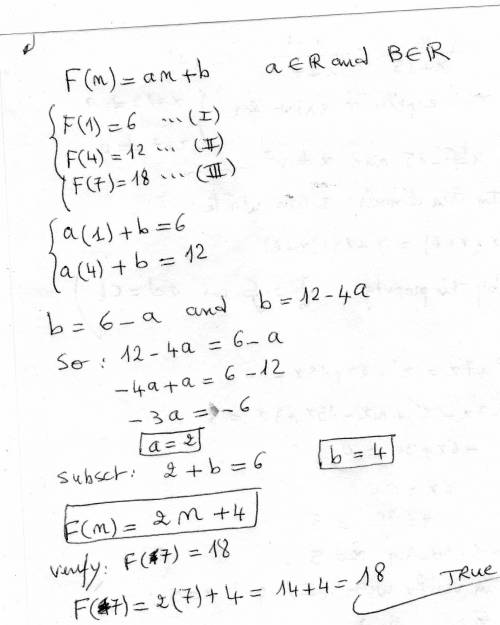 F(n) = an + b    a ∈ ℝ and B ∈ ℝ
F(1) = 6 ... (I)
F(4) = 12 ... (II)
F(7) = 18 ... (III)
a(1) + b = 6
a(4) + b = 12
b = 6 - a and b = 12 - 4a
So : 12 - 4a = 6 - a
-4a + a = 6 - 12
-3a = -6
a = 2
subsct: 2 + b = 6    b = 4
F(n) = 2n + 4
verify: F(7) = 18
F(7) = 2(7) + 4 = 14 + 4 = 18    TRUE